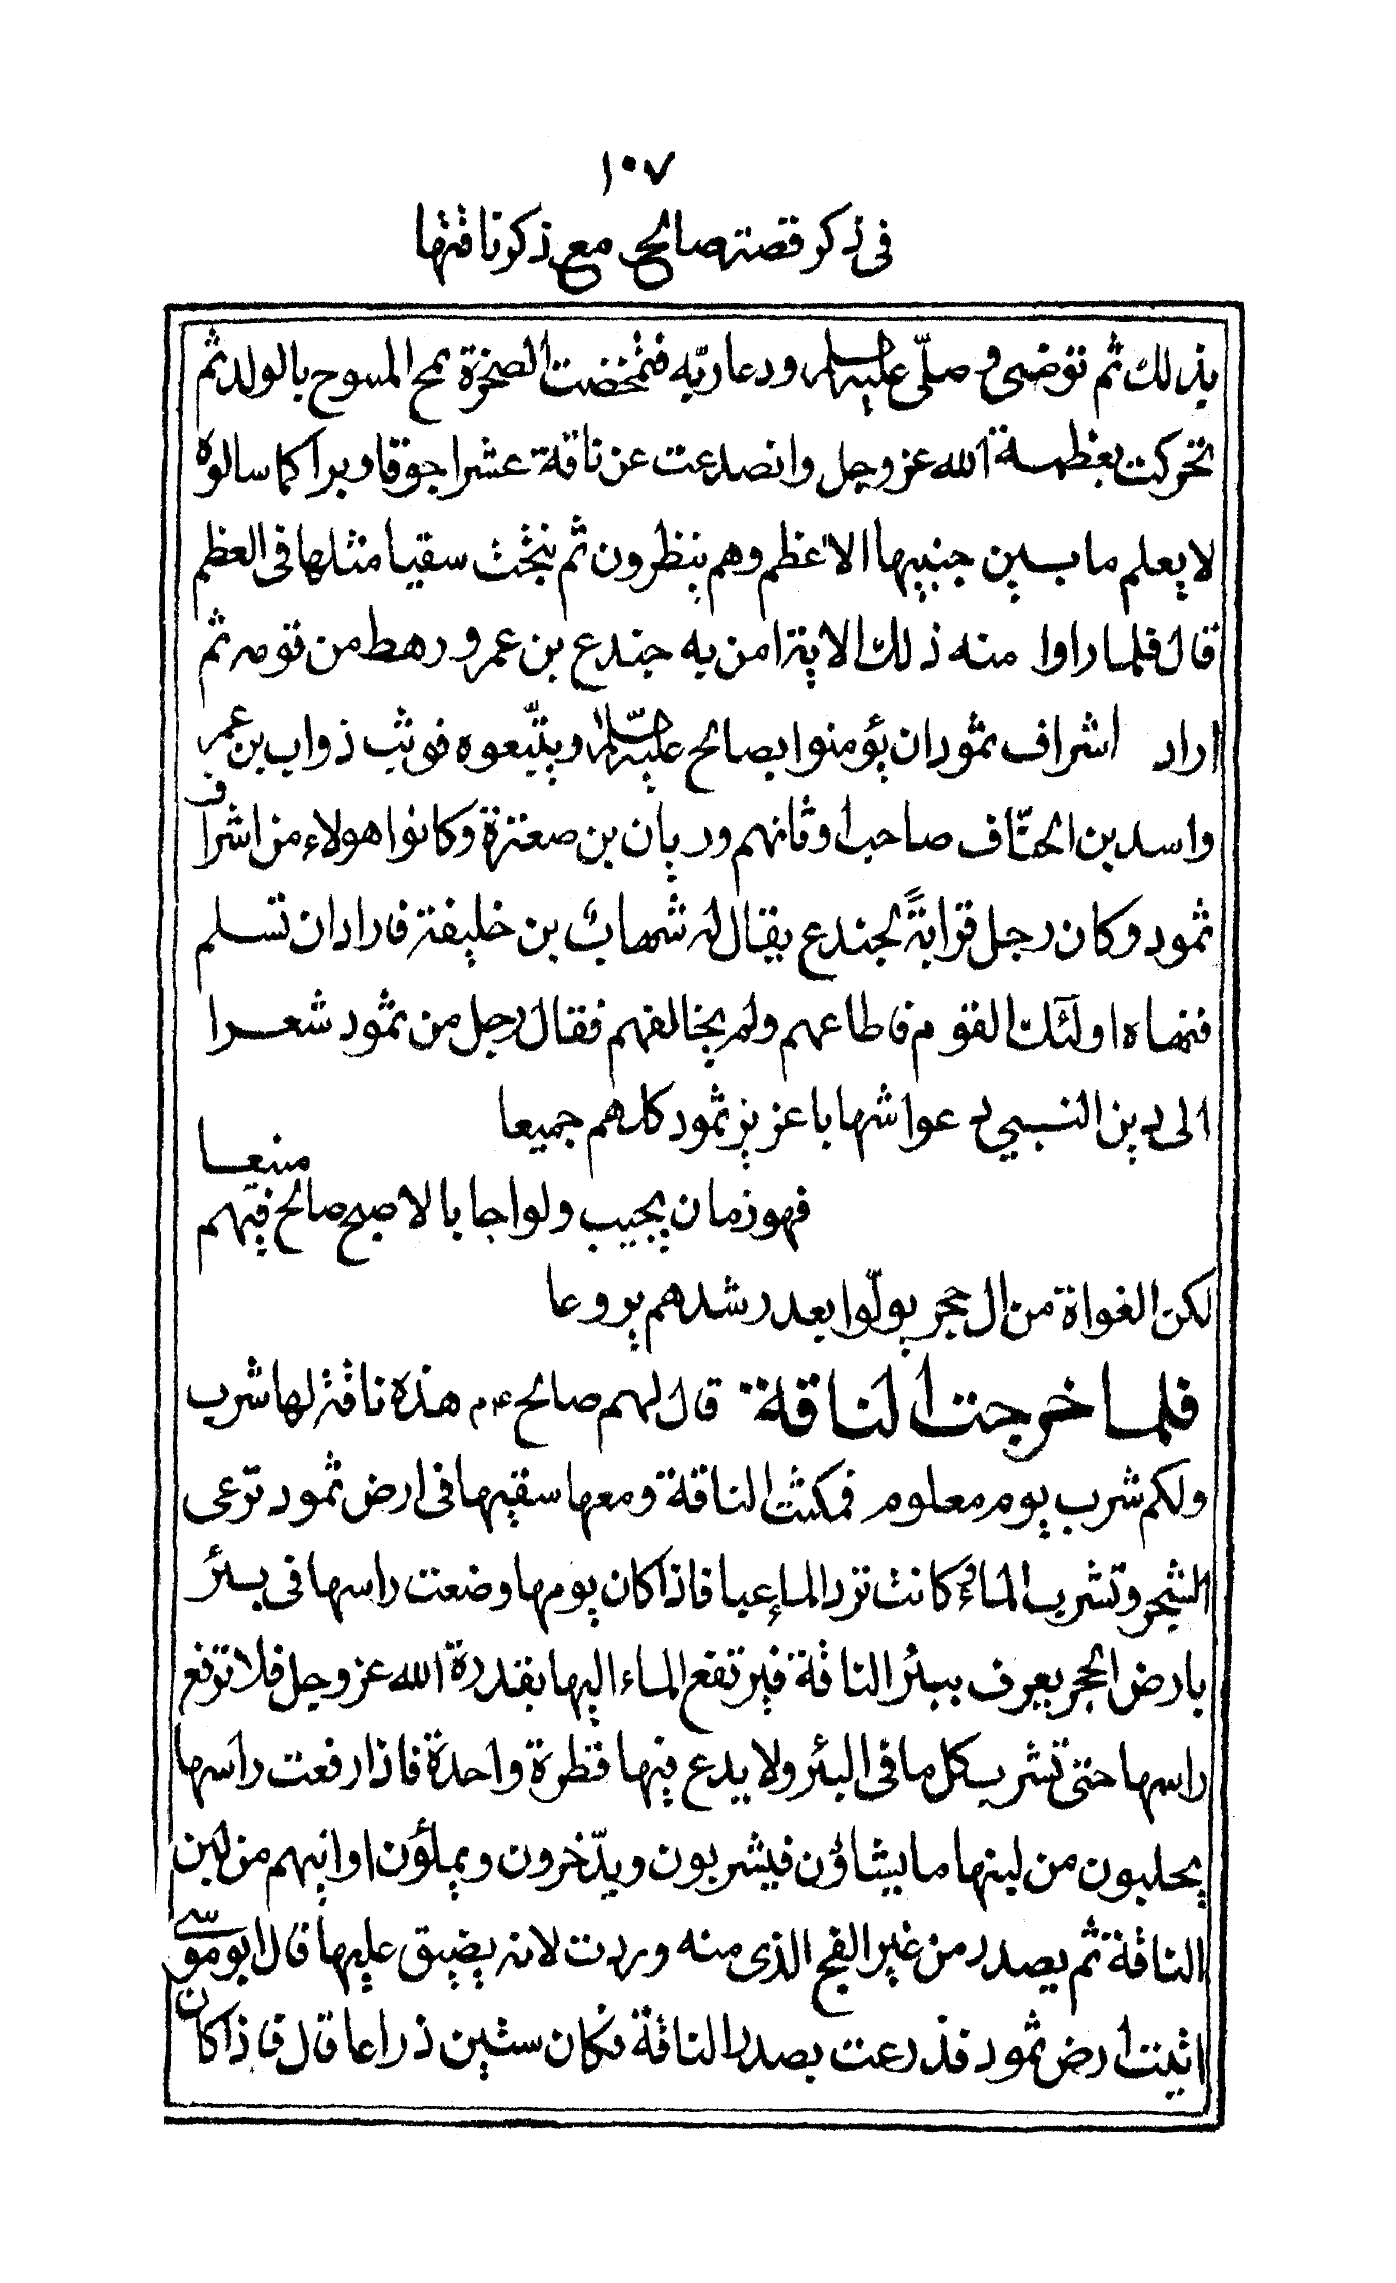 ١٠٧
فى ذكر قصة صالح مع ذكر ناقتها
بذلك ثم توضى و صلّى عليه السلام ودعا ربّه فتمخضت الصخرة تمح المسوح بالولد ثم
تحركت بعظمة الله عز وجل وانصدعت عن ناقة عشرا جوفا وبرا كما سالوه
لا يعلم ما بين جنبيها الا عظم وهم ينظرون ثم نتجت سقيا مثلها فى العظم
قال فلما راوا منه ذلك الاية امن به جندع بن عمرو رهط من قومه ثم
اراد اشراف ثمود ان يؤمنوا بصالح عليه السلام ويتّبعوه فوثب ذواب بن عمر
واسد بن الحتّاف صاحب اوثانهم ورباب بن صعترة وكانوا هولاء من اشراف
ثمود وكان رجل قرابةً لجندع يقال له شهابٌ بن خليفة فاراد ان تسلم
فنهاه اولئك القوم فاطاعهم ولم يخالفهم فقال رجل من ثمود شعرا
الى دين النبي دعوا شهابا عزيز ثمود كلهم جميعا
منيعا
فهو زمان يجيب ولو اجابا لاصبح صالح فيهم
لكن الغواة من ال حجر بولّوا بعد رشدهم بروعا
فلما خرجت الناقة قال لهم صالح ع م هذه ناقة لها شرب
ولكم شرب يوم معلوم فمكثت الناقة ومعها سقيها فى ارض ثمود ترعى
الشجر وتشرب الماءُ كانت ترد الماء عبا فاذا كان يومها وضعت راسها فى بئر
بارض الحجر يعرف ببئر الناقة فيرتفع الماء اليها بقدرة الله عز وجل فلا ترفع
راسها حتى تشرب كل ما فى البئر ولا يدع فيها قطرة واحدة فاذا رفعت راسها
يحلبون من لبنها ما يشاؤن فيشربون ويدّخرون ويملؤن اوانيهم من لبن
الناقة ثم يصدر من غير الفج الذى منه وردت لانه يضيق عليها قال ابو موسى
اتيت ارض ثمود فذرعت بصدر الناقة فكان ستين ذراعا قال فاذا كان